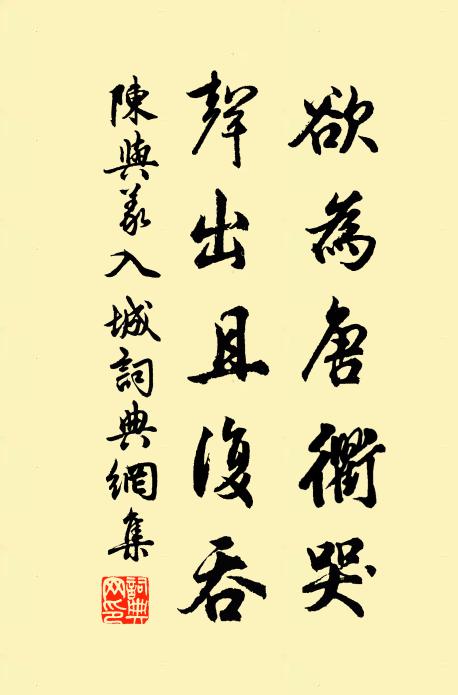 欲為唐衢哭
聲出且復吞
陳與義入城詞典網集
詞典網印